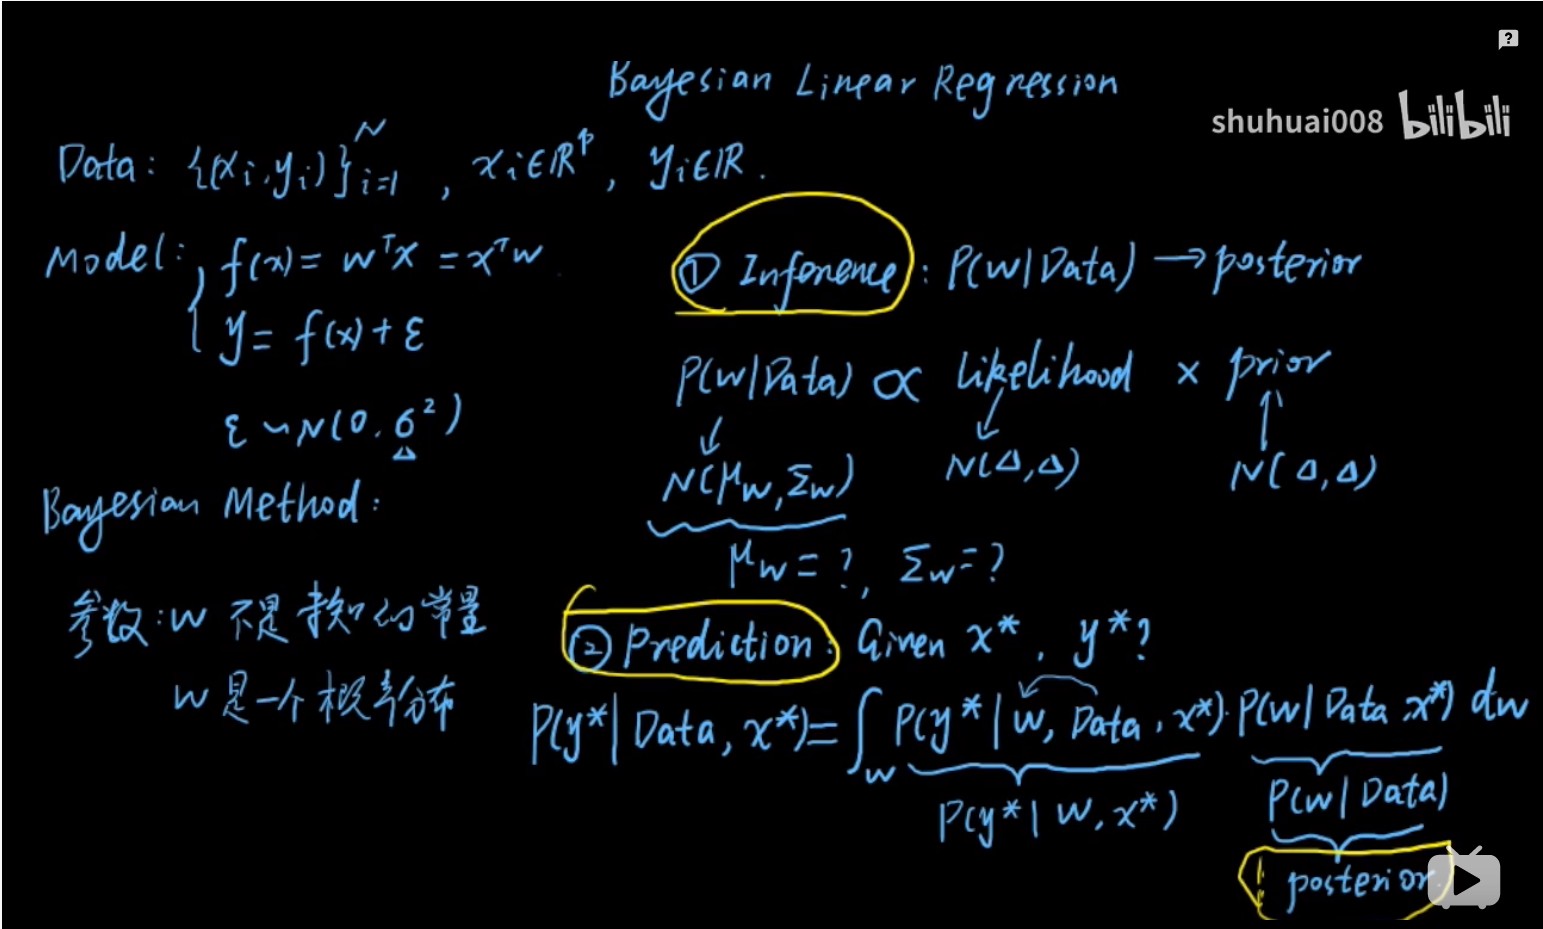 Bayesian Linear Regression
shuhuai008 bilibili
Data: {(xᵢ, yᵢ)}ᵢ₌₁ᴺ, xᵢ∈ℝᵖ, yᵢ∈ℝ.
Model: f(x) = wᵀx = xᵀw
y = f(x) + ε
ε ~ N(0, σ²)
△
Bayesian Method:
参数: w 不是未知的常量
w 是一个概率分布
① Inference: P(w|Data) → posterior
P(w|Data) ∝ likelihood × prior
N(μw, Σw) N(△, △) N(△, △)
μw = ?, Σw = ?
② Prediction: Given x*, y*?
P(y*|Data, x*) = ∫w P(y*|w, Data, x*)·P(w|Data, x*) dw
P(y*|w, x*) P(w|Data)
posterior